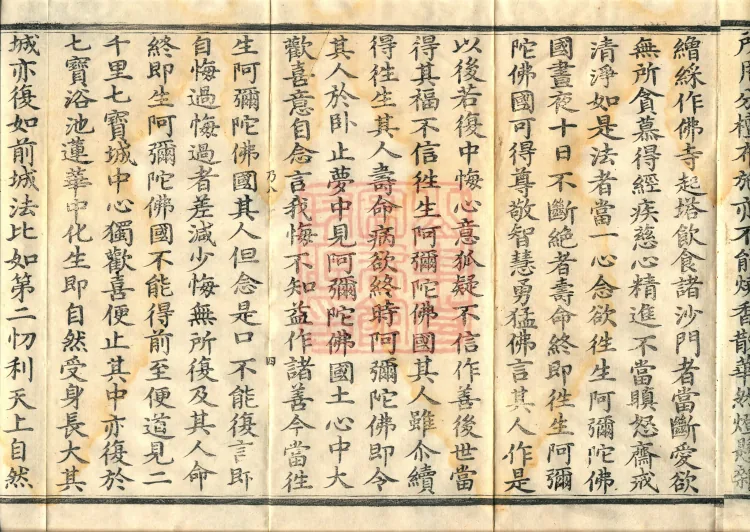 繒綵作佛寺起塔飲食諸沙門者當斷愛欲
無所貪慕得經疾慈心精進不當瞋怒齋戒
清淨如是法者當一心念欲徃生阿彌陀佛
國晝夜十日不斷絕者壽命終即徃生阿彌
陀佛國可得尊敬智慧勇猛佛言其人作是
以後若復中悔心意狐疑不信作善後世當
得其福不信徃生阿彌陀佛國其人雖尒續
得徃生其人壽命病欲終時阿彌陀佛即令
其人於卧止夢中見阿彌陀佛國土心中大
歡喜意自念言我悔不知益作諸善今當徃
乃八 四
生阿彌陀佛國其人但念是口不能復言即
自悔過悔過者差減少悔無所復及其人命
終即生阿彌陀佛國不能得前至便道見二
千里七寶城中心獨歡喜便止其中亦復於
七寶浴池蓮華中化生即自然受身長大其
城亦復如前城法比如第二忉利天上自然